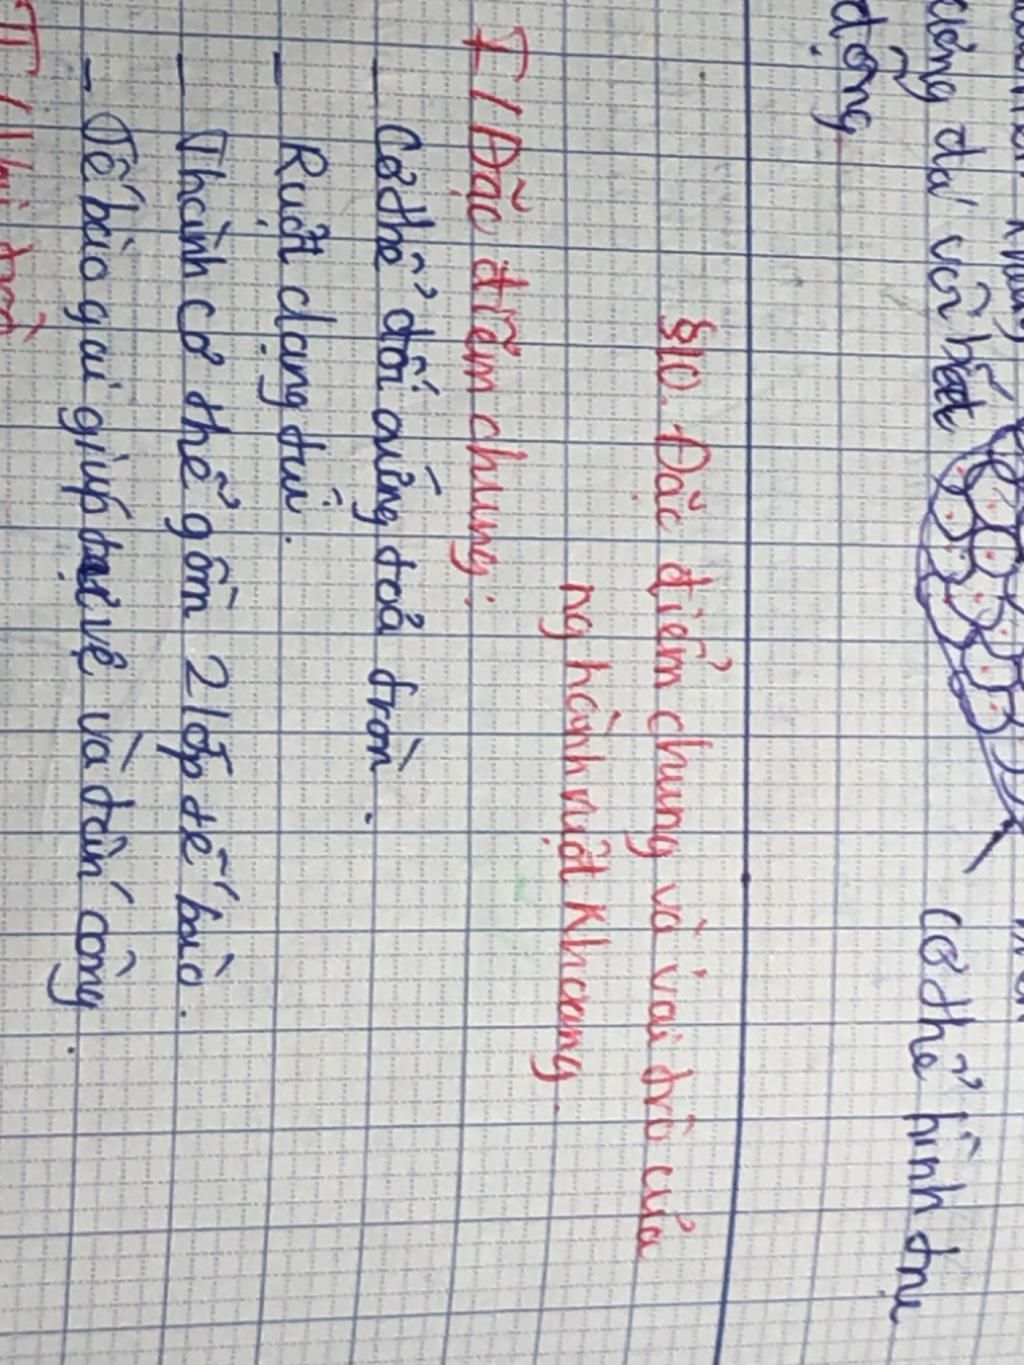 cơ thể hình trụ
động
§10. Đặc điểm chung và vai trò của
ngành ruột khoang.
I/ Đặc điểm chung:
- Cơ thể đối xứng toả tròn.
- Ruột dạng túi.
- Thành cơ thể gồm 2 lớp tế bào.
- Tế bào gai giúp tự vệ và tấn công.
II/ Vai trò